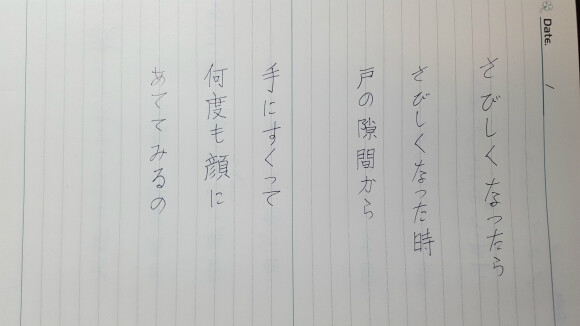 Date.
さびしくなったら
さびしくなった時
戸の隙間から
手にすくって
何度も顔に
あててみるの